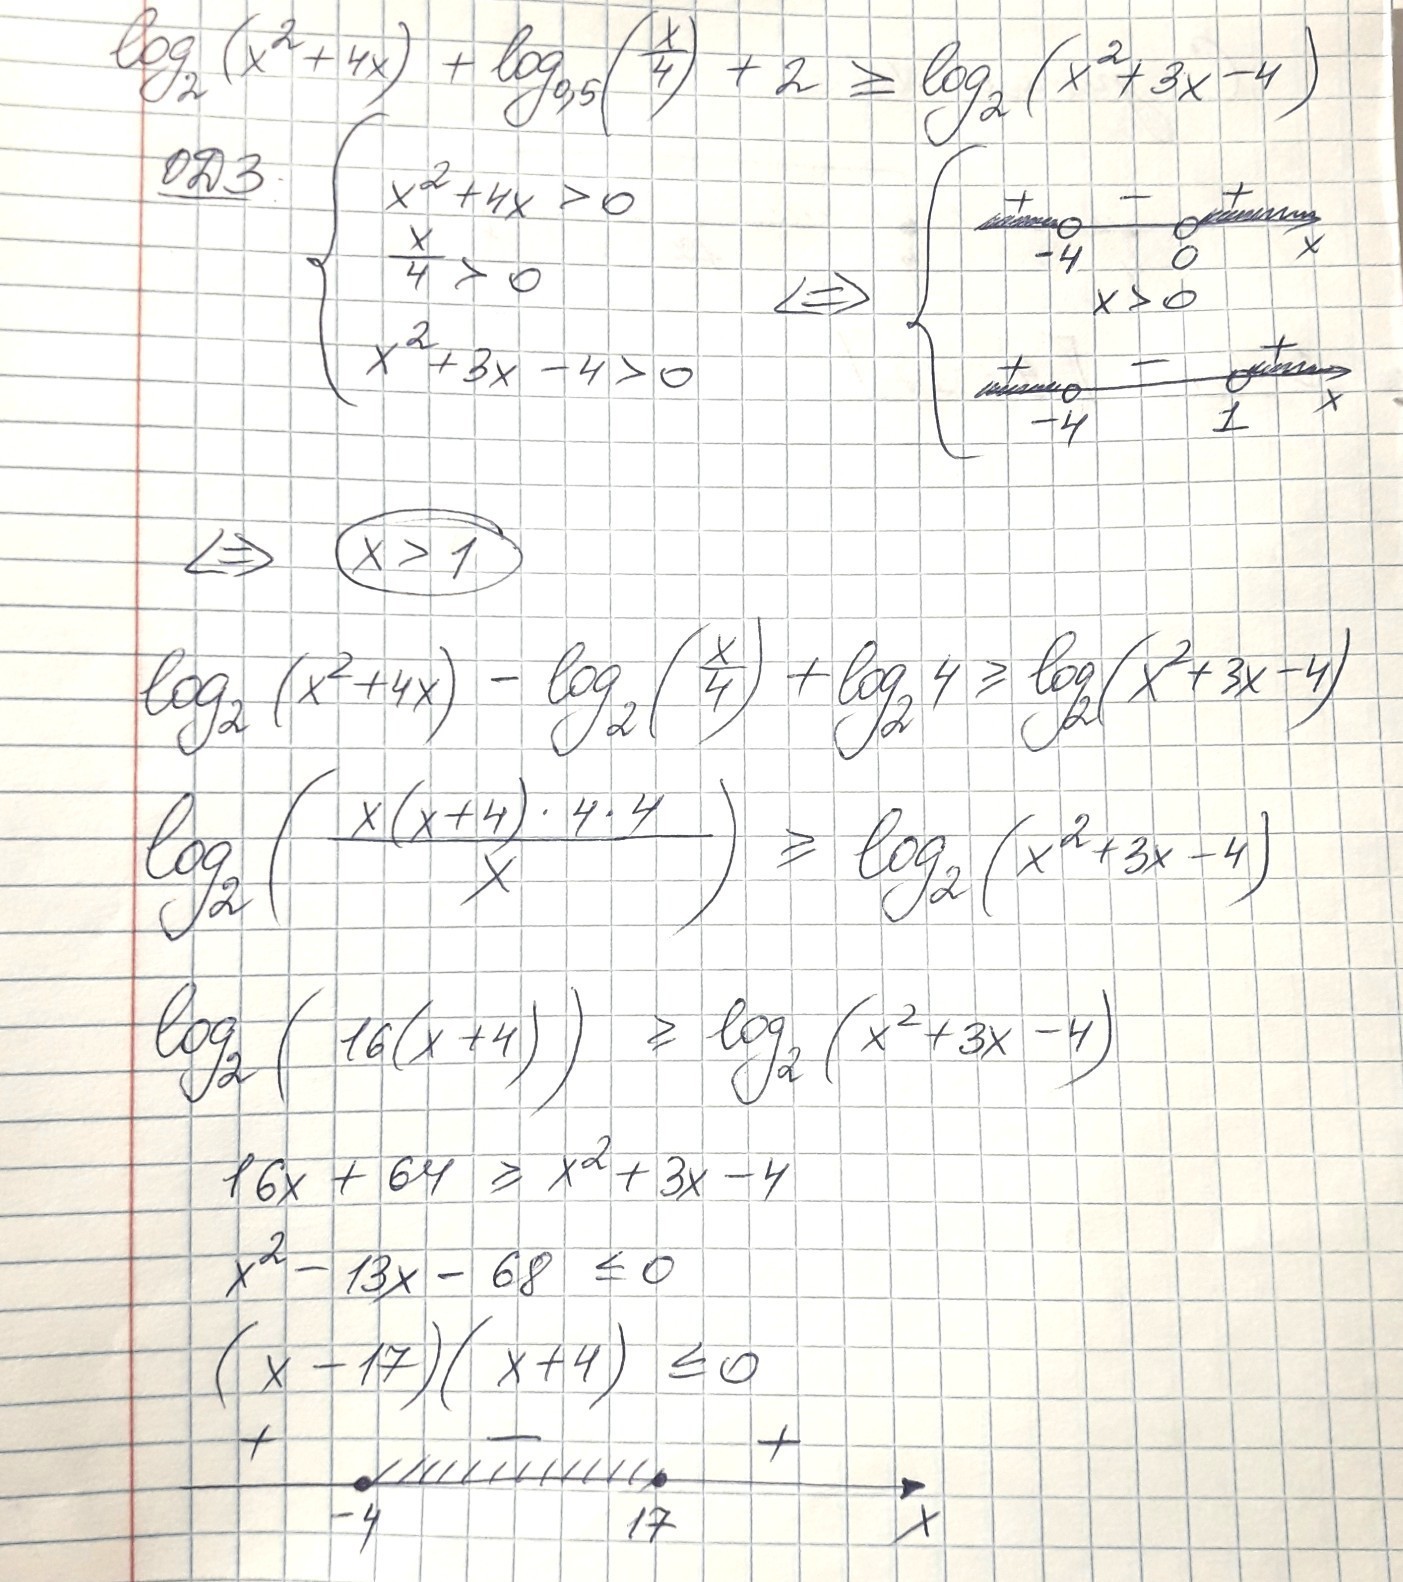 log₂(x²+4x) + log₀,₅(x/4) + 2 ≥ log₂(x²+3x-4)
ОДЗ
x²+4x > 0
x/4 > 0
x²+3x-4 > 0
⇔
+ - +
-4 0 x
x > 0
+ - +
-4 1 x
⇔ x > 1
log₂(x²+4x) - log₂(x/4) + log₂4 ≥ log₂(x²+3x-4)
log₂(x(x+4)·4·4/x) ≥ log₂(x²+3x-4)
log₂(16(x+4)) ≥ log₂(x²+3x-4)
16x + 64 ≥ x²+3x-4
x² - 13x - 68 ≤ 0
(x-17)(x+4) ≤ 0
+ - +
-4 17 x